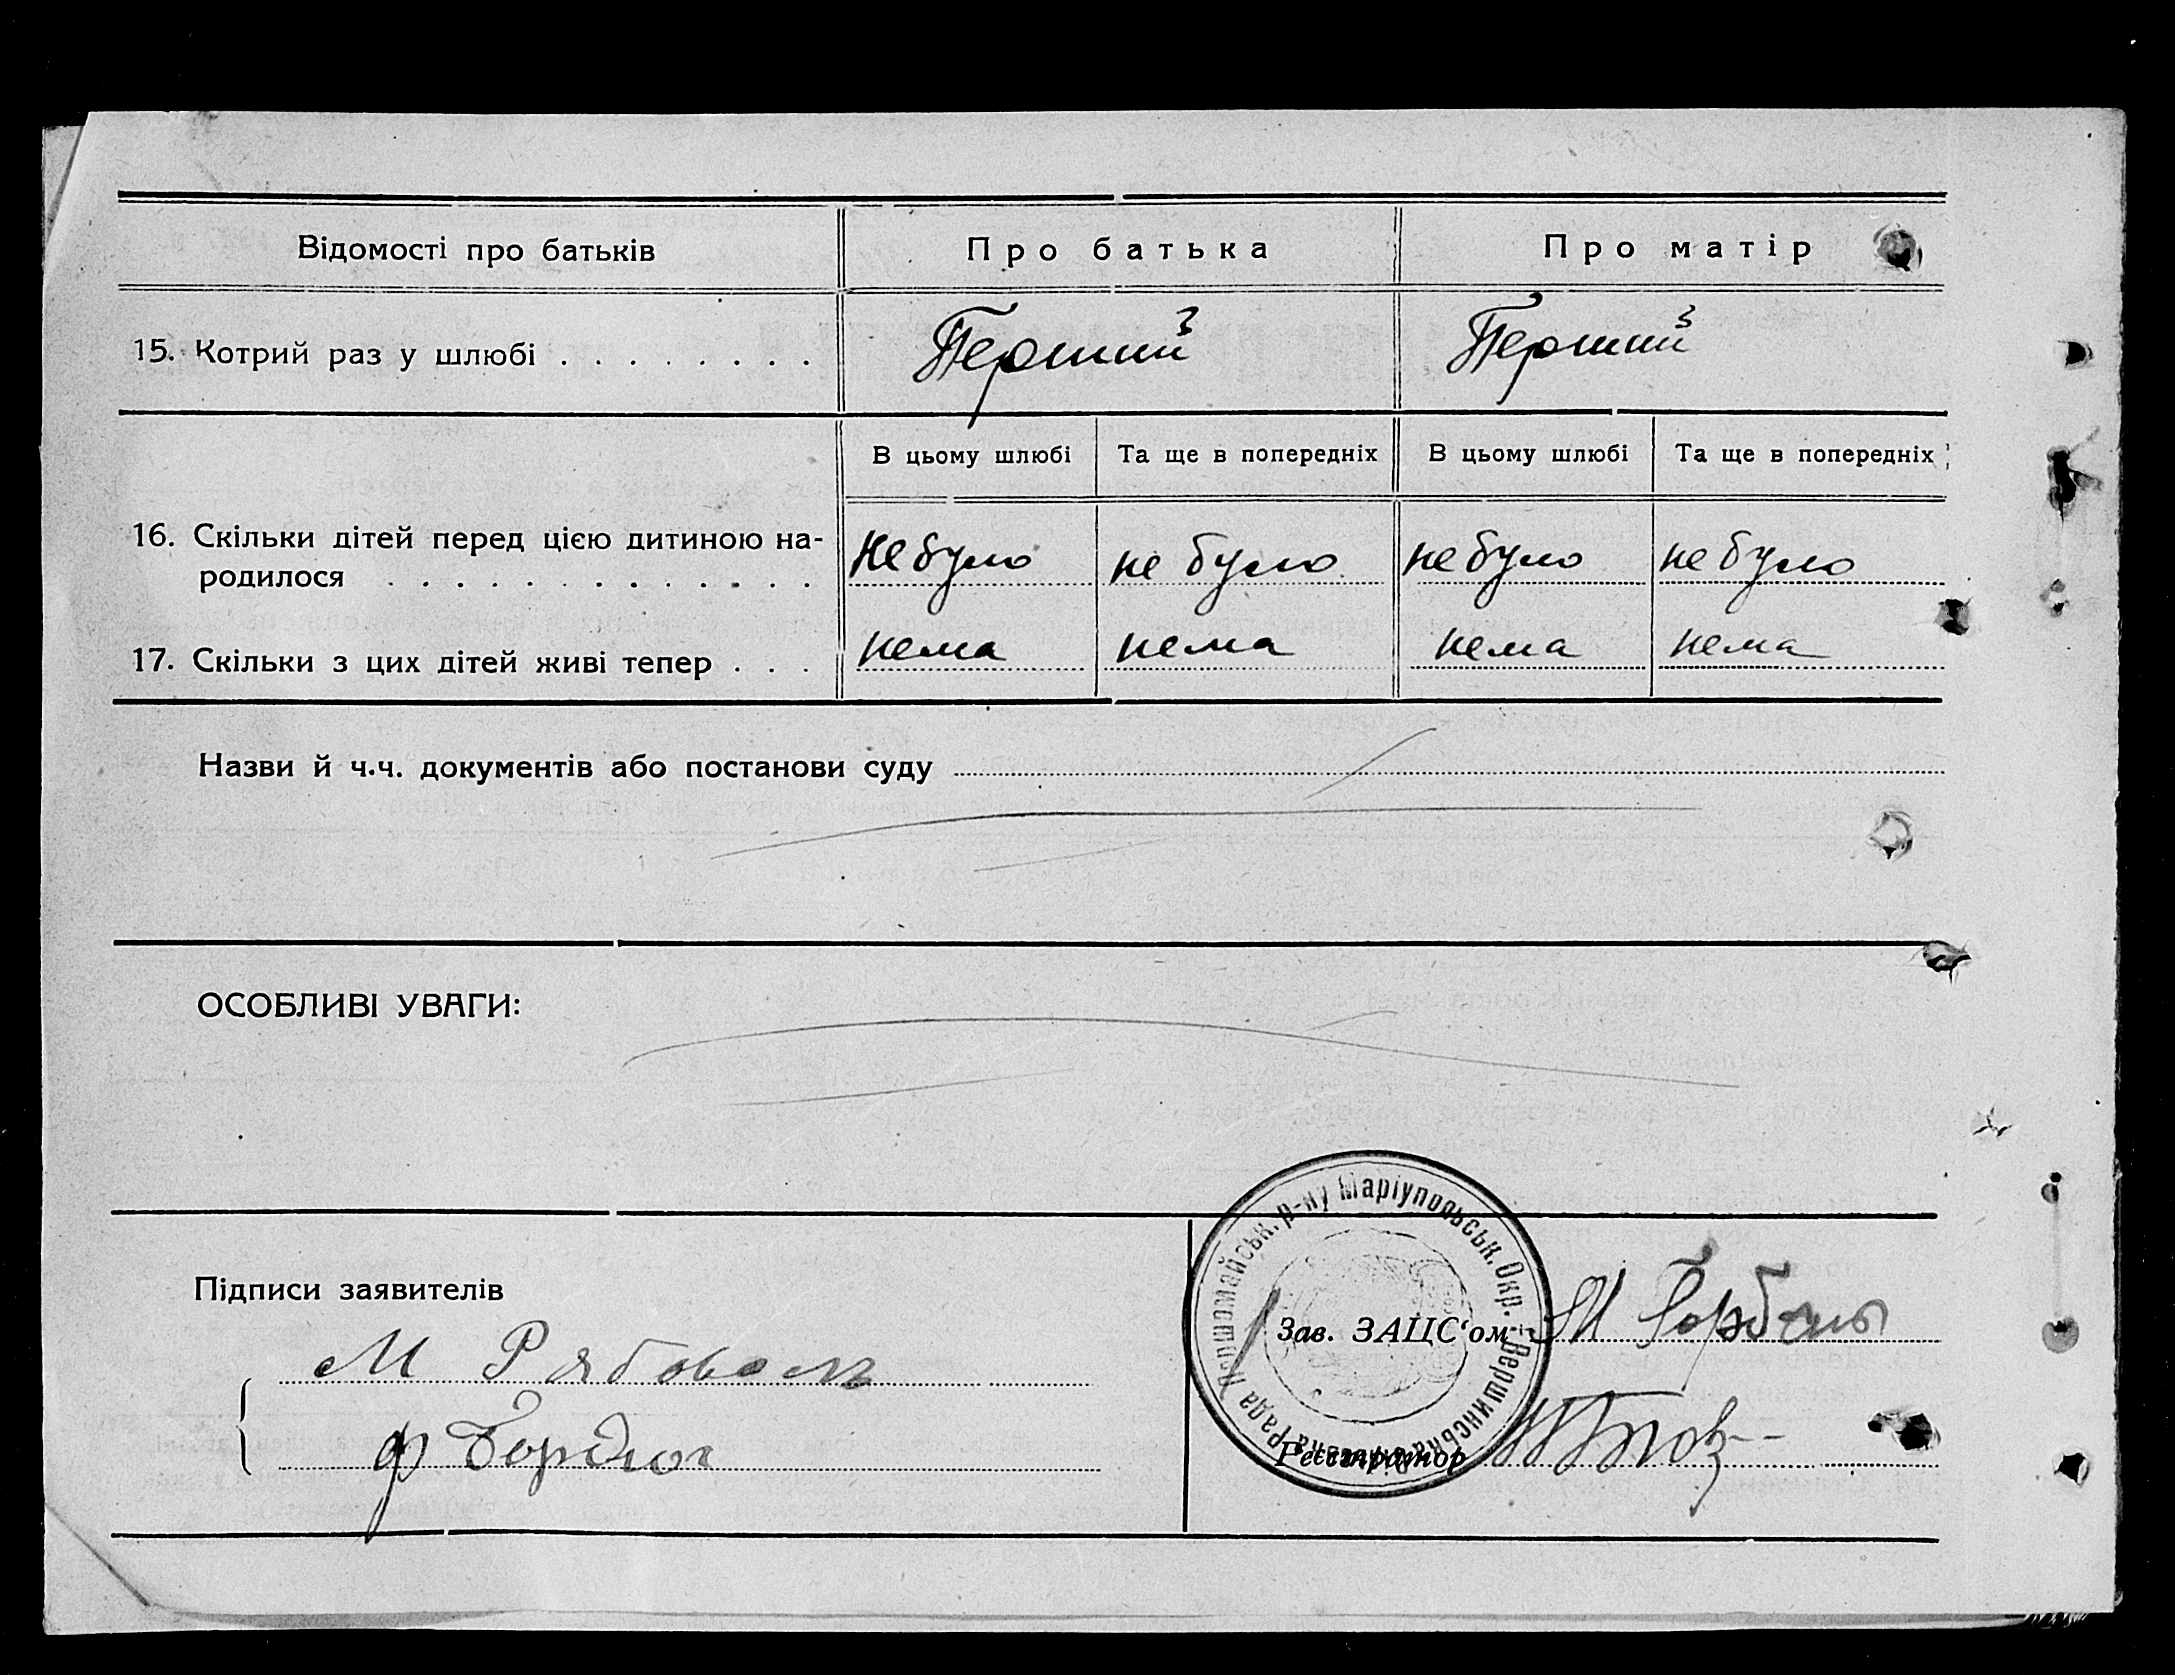 Відомості про батьків Про батька Про матір
15. Котрий раз у шлюбі . . . . . . . . Перший Перший
В цьому шлюбі Та ще в попередніх В цьому шлюбі Та ще в попередніх
16. Скільки дітей перед цією дитиною на-
родилося . . . . . . . . . . . . . не було не було не було не було
17. Скільки з цих дітей живі тепер . . . нема нема нема нема
Назви й ч.ч. документів або постанови суду
ОСОБЛИВІ УВАГИ:
Першомайськ. р-ну Маріупольськ. Окр. Вершинська Рада
Підписи заявителів
Зав. ЗАЦС'ом М Горбань
М Рябовол
Реєстратор
ф